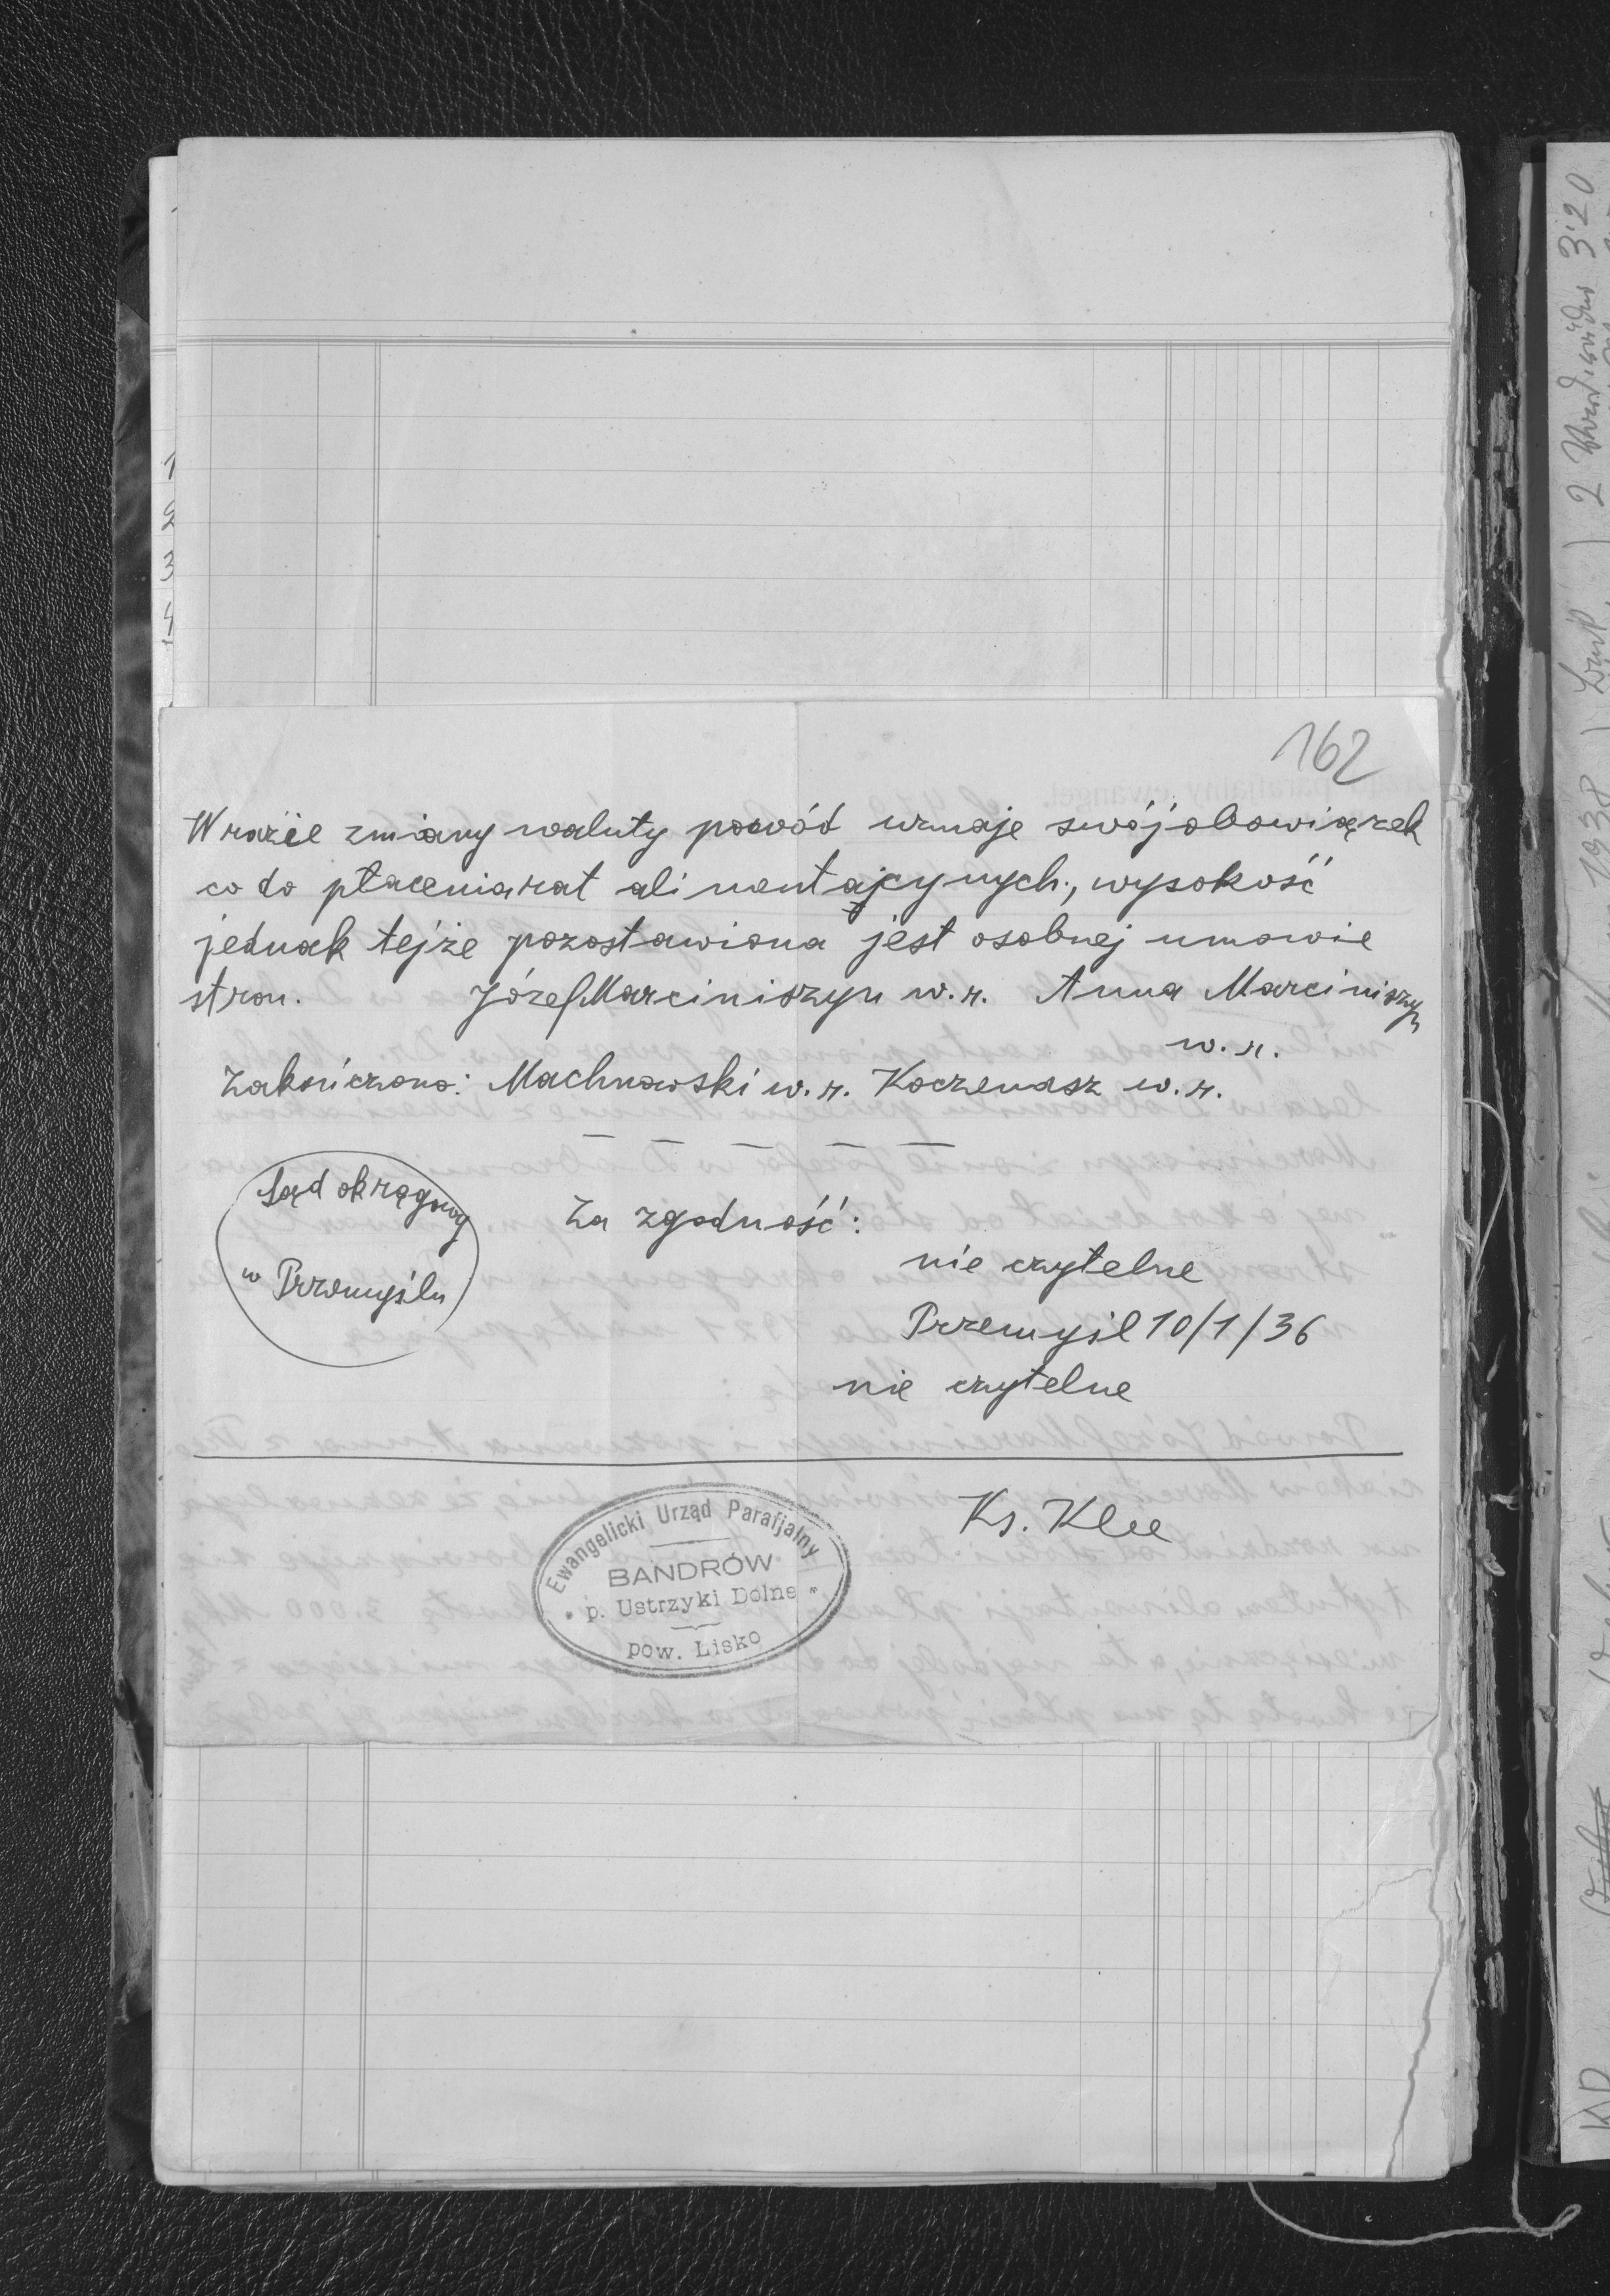 162
W razie zmiany waluty powód uznaje swój obowiązek
co do płacenia rat alimentajcyjnych., wysokość
jednak tejże pozostawiona jest osobnej umowie
stron. Józef Marciniszyn w. r. Anna Marciniszyn
w. r.
Zakończono: Machnowski w. r. Koczenasz w. r.
— — — — —
Sąd okręgowy
w Przemyślu
Za zgodność:
nie czytelne
Przemyśl 10/1/36
nie czytelne
Ks. Klee
Ewangelicki Urząd Parafjalny
BANDRÓW
p. Ustrzyki Dolne
pow. Lisko
1
2
3
4
3·20
1938